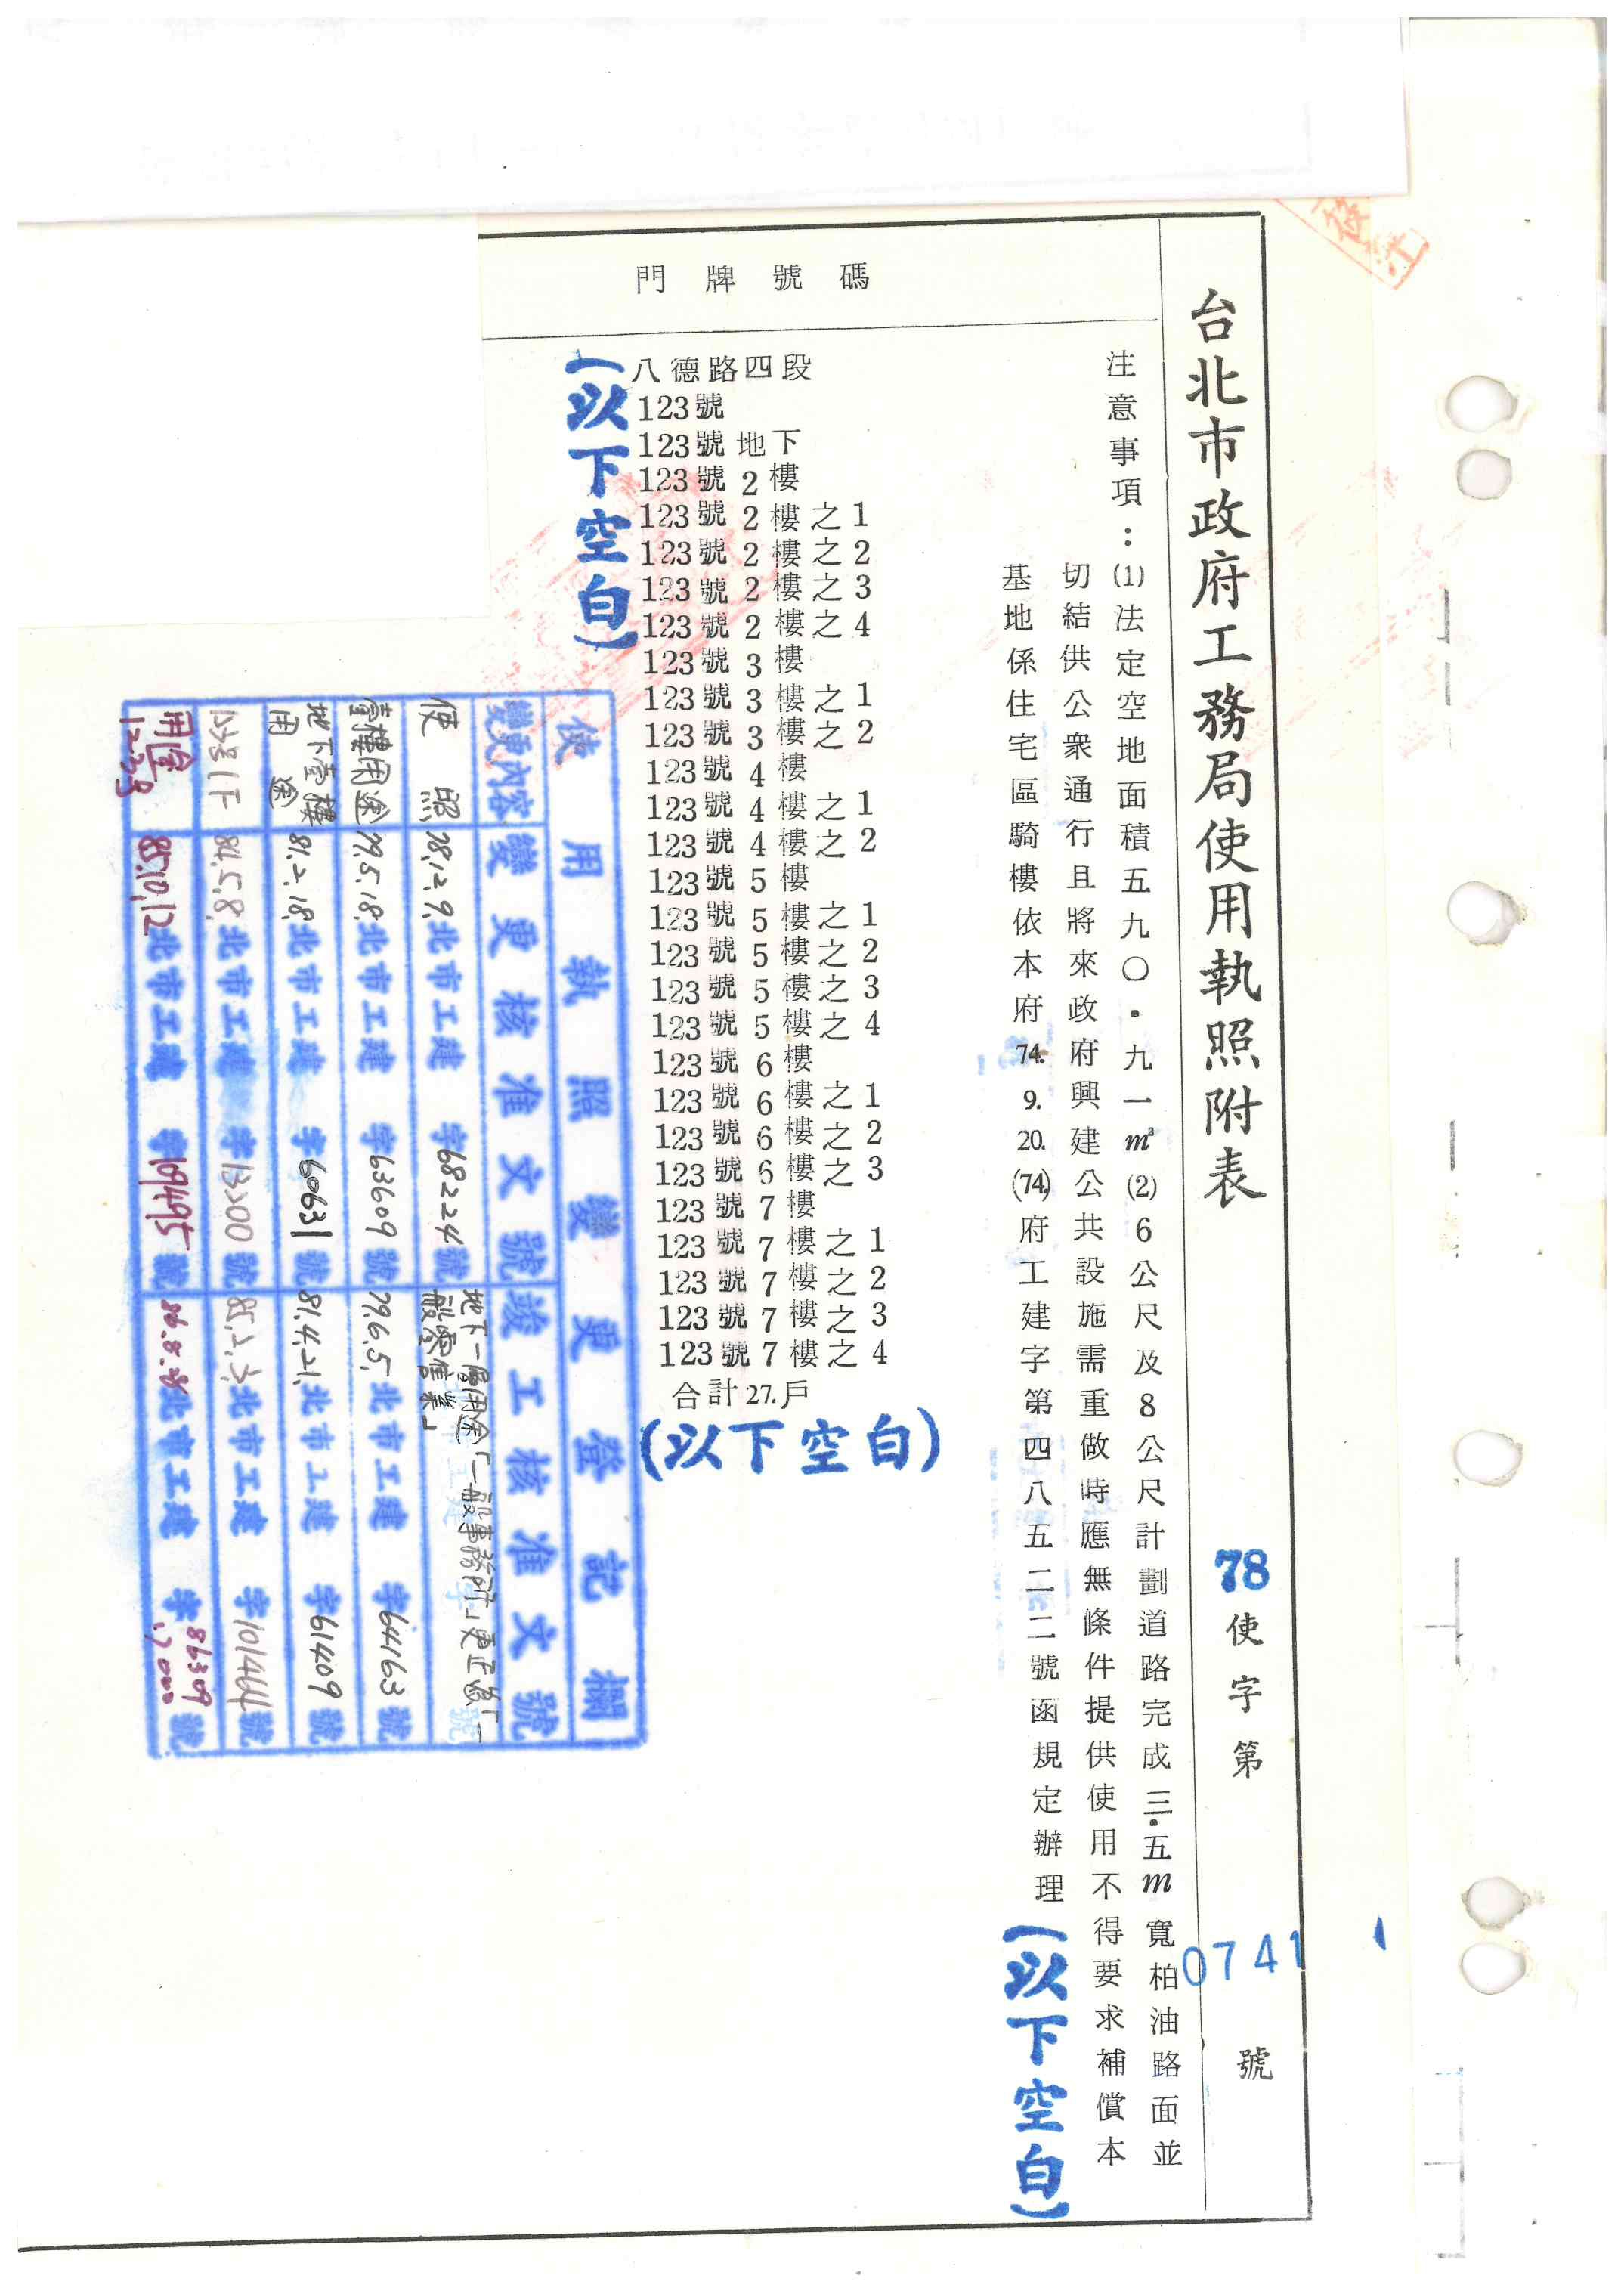 台北市政府工務局使用執照附表 78使字第0741號
注意事項：(1)法定空地面積五九〇・九一㎡(2)6公尺及8公尺計劃道路完成三・五m寬柏油路面並
切結供公眾通行且將來政府興建公共設施需重做時應無條件提供使用不得要求補償本
基地係住宅區騎樓依本府74.9.20.(74)府工建字第四八五二二號函規定辦理(以下空白)
門牌號碼
八德路四段
123號
123號地下
123號2樓
123號2樓之1
123號2樓之2
123號2樓之3
123號2樓之4
123號3樓
123號3樓之1
123號3樓之2
123號4樓
123號4樓之1
123號4樓之2
123號5樓
123號5樓之1
123號5樓之2
123號5樓之3
123號5樓之4
123號6樓
123號6樓之1
123號6樓之2
123號6樓之3
123號7樓
123號7樓之1
123號7樓之2
123號7樓之3
123號7樓之4
合計27.戶
(以下空白)
(以下空白)
使用執照變更登記欄
變更內容 變更核准文號 竣工核准文號
使照 78.12.9.北市工建字68224號 地下一層用途「一般事務所」更正為「一般零售業」
壹樓用途 79.5.18.北市工建字63609號 79.6.5.北市工建字64163號
地下壹樓用途 81.2.18.北市工建字60631號 81.4.21.北市工建字61409號
123號1F 84.5.8.北市工建字號 85.2.3.北市工建字101464號
用途 85.10.12北市工建字109495號 86.8.28北市工建字86309號